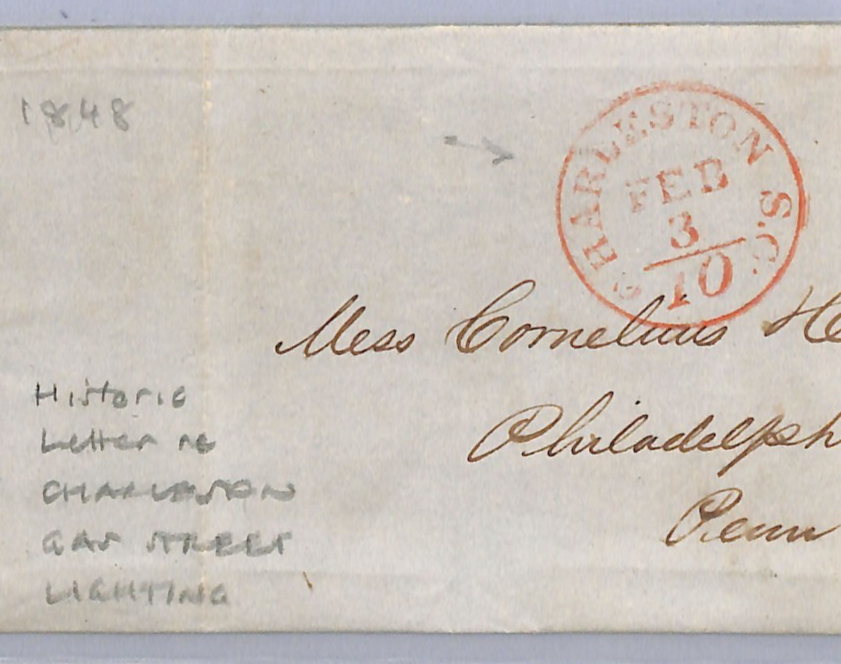 1848
CHARLESTON S.C.
FEB
3
10
Mess Cornelius
Philadelph
Penn
Historic
Letter re
CHARLESTON
GAS STREET
LIGHTING